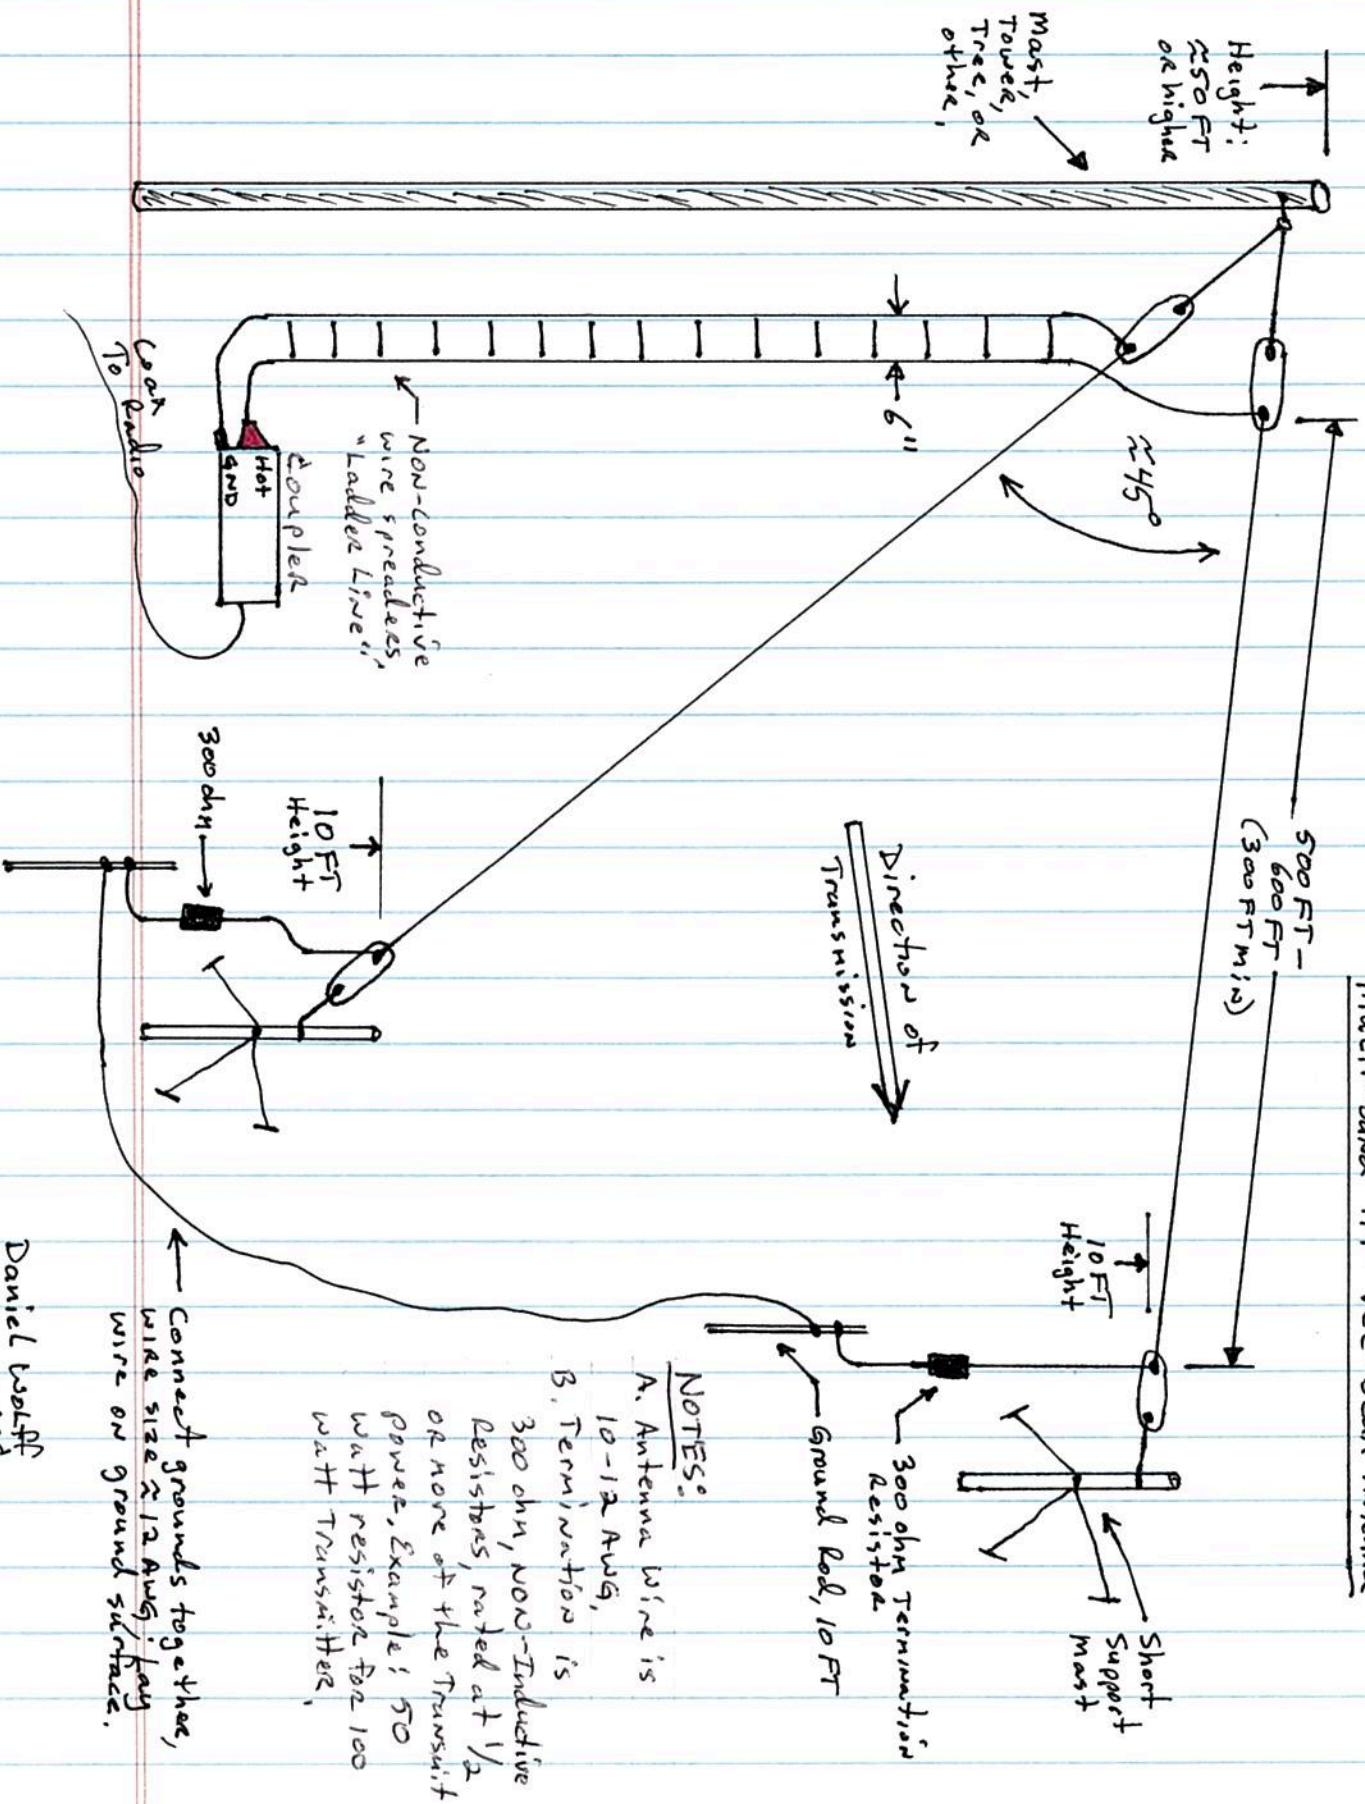 Height:
≈50 FT
or higher
Mast,
Tower,
Tree, or
other,
6"
≈45°
500 FT-
600 FT
(300 FT min)
Direction of
Transmission
Non-conductive
wire spreaders
"Ladder Line"
Coupler
Hot
GND
Coax
To Radio
10 FT
Height
300 ohm
10 FT
Height
Short
Support
mast
300 ohm Termination
Resistor
Ground Rod, 10 FT
NOTES:
A. Antenna wire is
10-12 AWG,
B. Termination is
300 ohm, NON-Inductive
Resistors, rated at 1/2
or more of the Transmit
Power, Example: 50
watt resistor for 100
watt Transmitter,
Connect grounds together,
wire size ≈ 12 AWG, lay
wire on ground surface.
Daniel Wolff